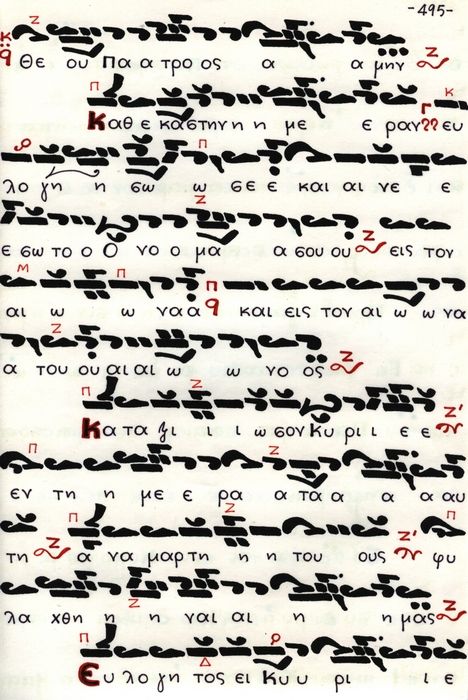 -495-
Θε ου Πα α τρο ος α α μην
Καθ ε κα στην η η με ε ραν?? ευ
λο γη η σω ω σε ε και αι νε ε
ε σω το ο Ο νο ο μα α σου ου εις τον
αι ω ω να α και εις τον αι ω ω να
α του ου αι αι ω ω νο ος
Κα τα ξι ι ω σον Κυ ρι ι ε ε
εν τη η με ε ρα α τα α α α αυ
τη α να μαρ τη η η του ους φυ
λα χθη η η ναι αι η η μας
Ευ λο γη τος ει Κυ υ ρι ι ε